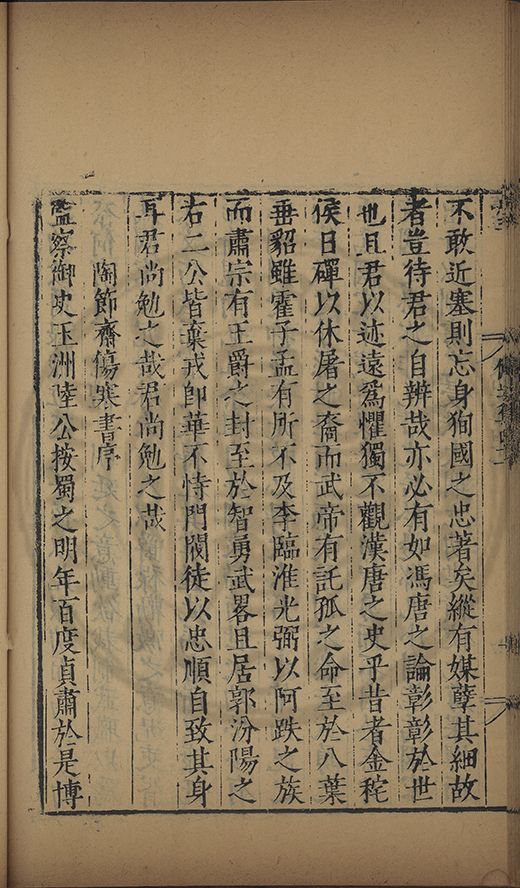 不敢近塞則忘身狥國之忠著矣縱有媒孽其細故
者豈待君之自辨哉亦必有如馮唐之論彰彰於世
也且君以迹遠爲懼獨不觀漢唐之史乎昔者金秺
侯日磾以休屠之裔而武帝有託孤之命至於八葉
珥貂雖霍子孟有所不及李臨淮光弼以阿跌之族
而肅宗有王爵之封至於智勇武畧且居郭汾陽之
右二公皆棄戎卽華不恃門閥徒以忠順自致其身
耳君尚勉之哉君尚勉之哉
陶節齋傷寒書序
監察御史玉洲陸公按蜀之明年百度貞肅於是博